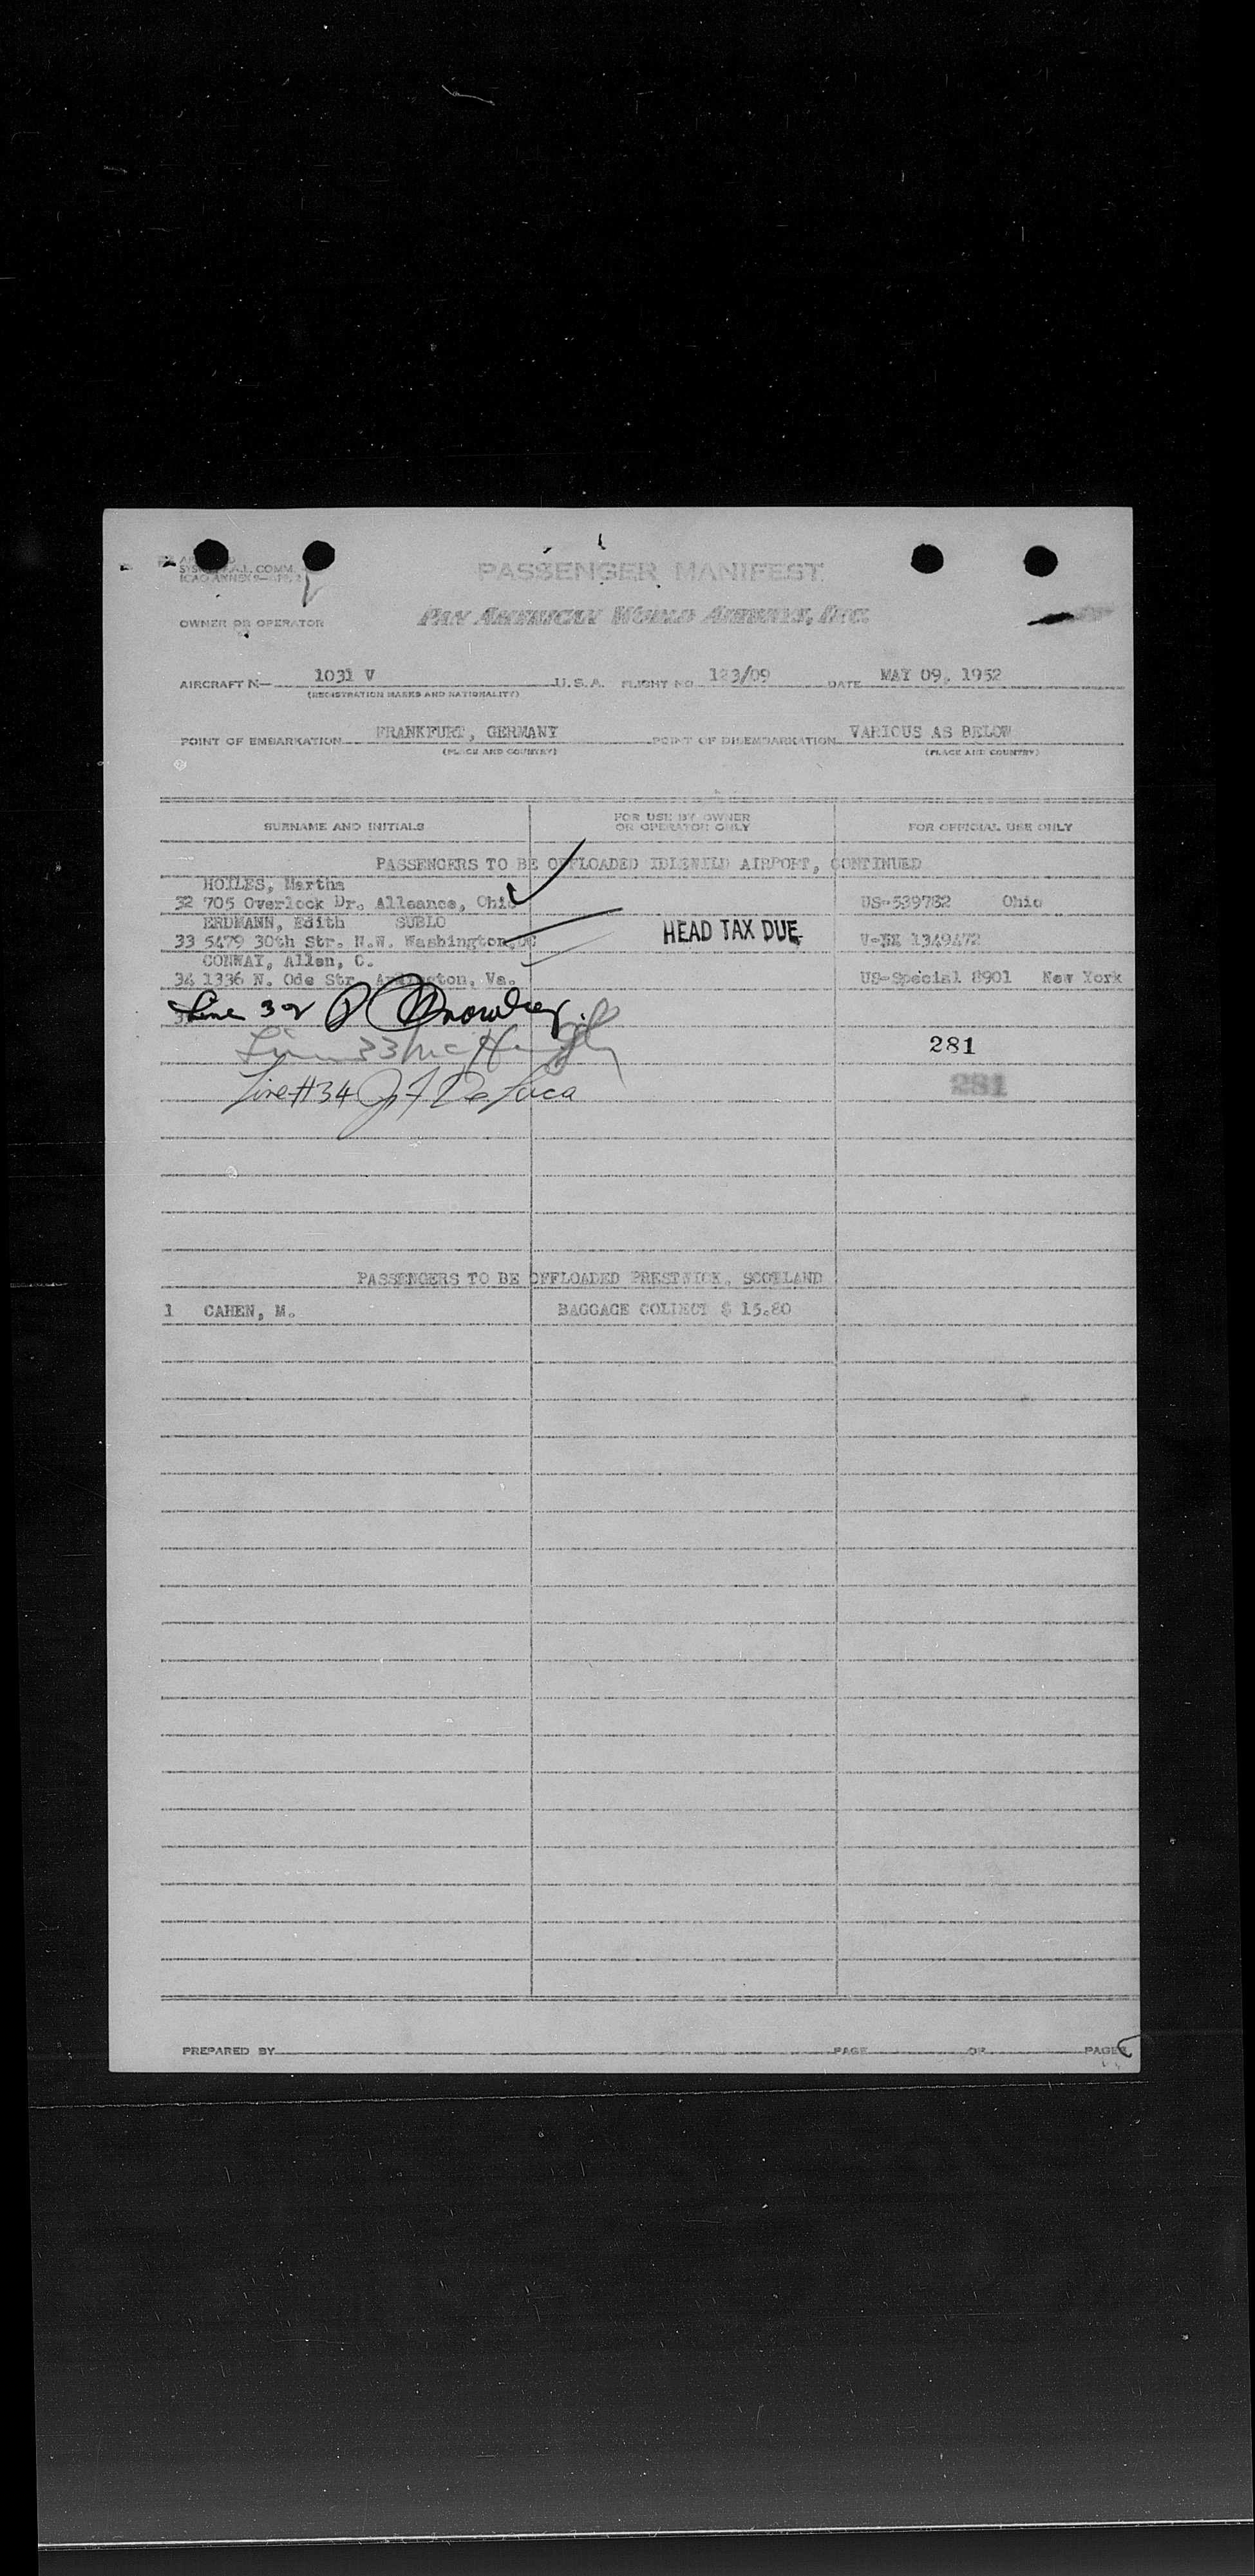 SYSTEM F.A.L. COMM.
ICAO ANNEX 9—APP. 2
PASSENGER MANIFEST
OWNER OR OPERATOR
PAN AMERICAN WORLD AIRWAYS, INC.
AIRCRAFT N— 1031 V U.S.A. FLIGHT NO 123/09 DATE MAY 09, 1952
(REGISTRATION MARKS AND NATIONALITY)
POINT OF EMBARKATION FRANKFURT, GERMANY POINT OF DISEMBARKATION VARIOUS AS BELOW
(PLACE AND COUNTRY) (PLACE AND COUNTRY)
SURNAME AND INITIALS FOR USE BY OWNER OR OPERATOR ONLY FOR OFFICIAL USE ONLY
PASSENGERS TO BE OFFLOADED IDLEWILD AIRPORT, CONTINUED
HOILES, Martha
32 705 Overlock Dr. Alleance, Ohio US-539782 Ohio
ERDMANN, Edith SUBLO
33 5479 30th Str. N.W. Washington, DC HEAD TAX DUE 1349472
CONWAY, Allen, C.
34 1336 N. Ode Str. Arlington, Va. US-Special 8901 New York
Line 32
Line 33 281
Line #34 De Luca 281
PASSENGERS TO BE OFFLOADED PRESTWICK, SCOTLAND
1 CAHEN, M. BAGGAGE COLLECT $ 15.80
PREPARED BY PAGE OF PAGES